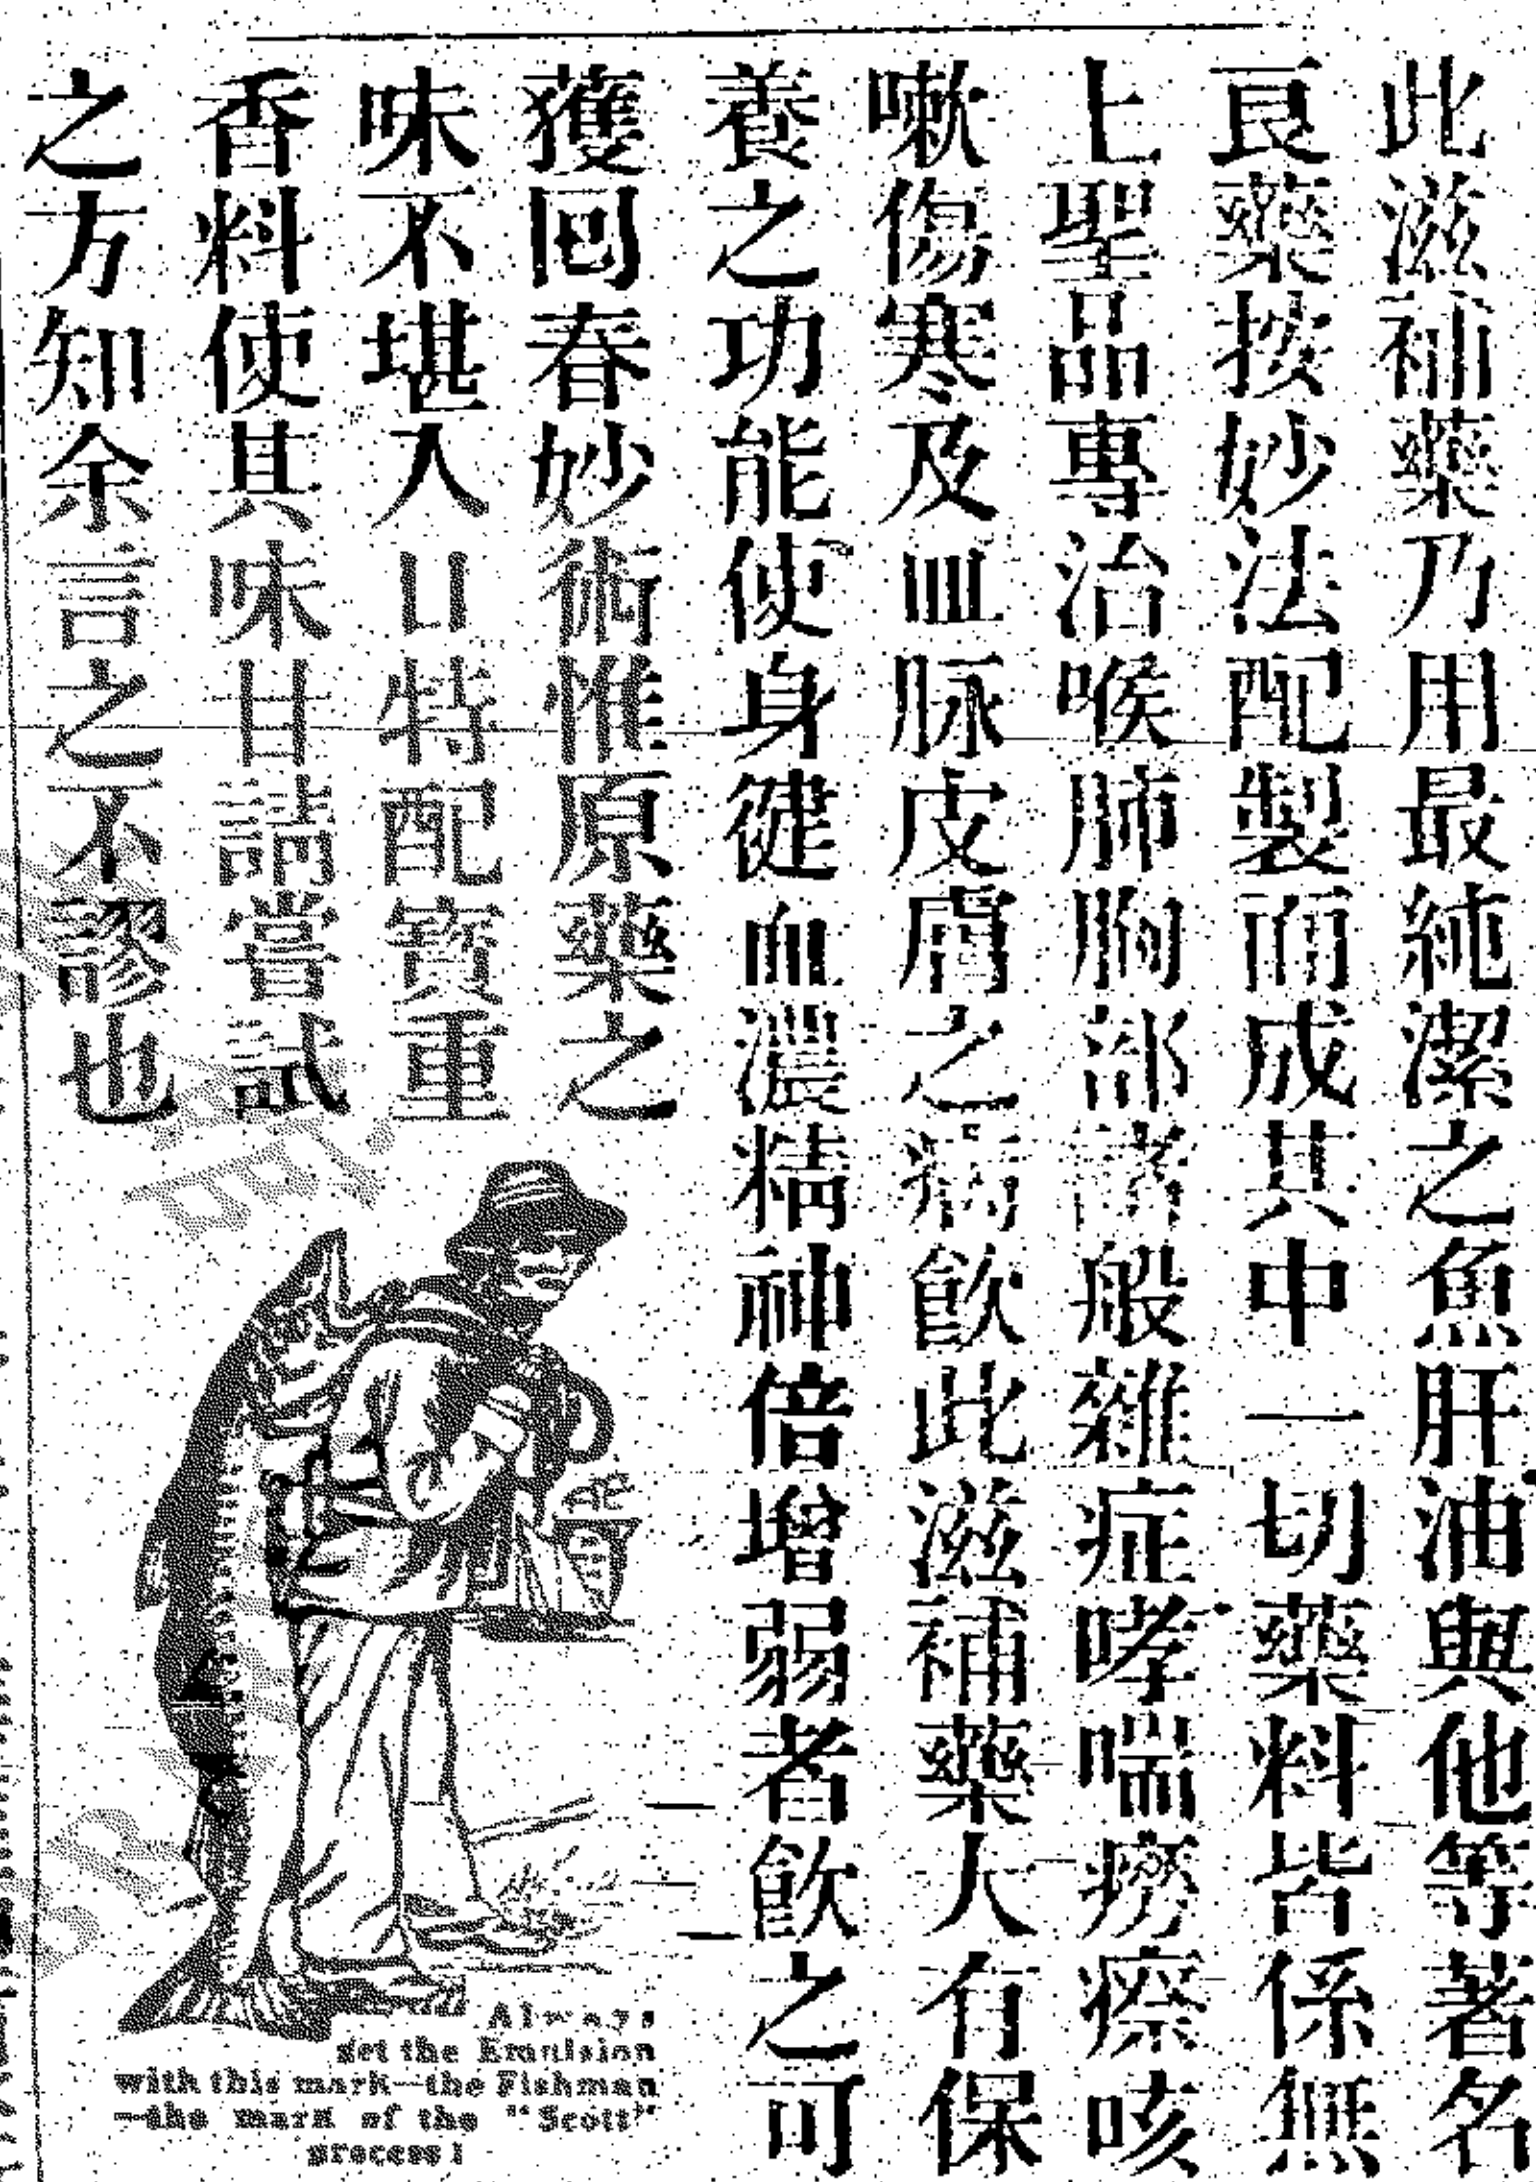 此滋補藥乃用最純潔之魚肝油與他等著名
良藥按妙法配製而成其中一切藥料皆係無
上聖品專治喉肺胸部諸般雜症哮喘癆瘵咳
嗽傷寒及血脉皮膚之病飮此滋補藥大有保
養之功能使身健血濃精神倍增弱者飮之可
獲回春妙術惟原藥之
味不堪入口特配寳重
香料使其味甘請嘗試
之方知余言之不謬也
Always
get the Emulsion
with this mark—the Fishman
—the mark of the "Scott"
process!